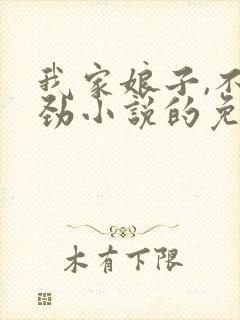 我家娘子,不
劲小说的免
木有下限